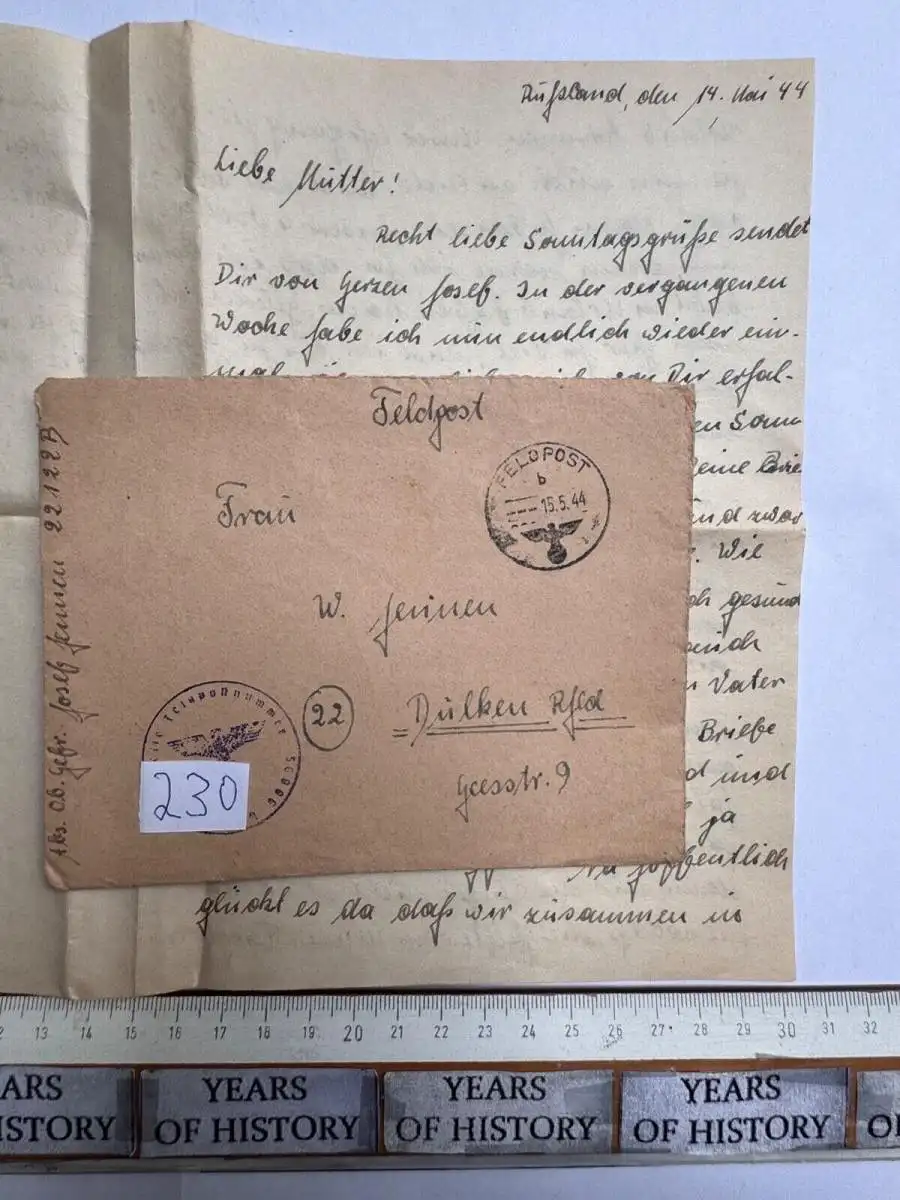 Rußland, den 14. Mai 44
Liebe Mutter!
Recht liebe Sonntagsgrüße sendet
Dir von Herzen Josef. In der vergangenen
Woche habe ich nun endlich wieder ein-
Dir erhal-
en Sonn
eine Brie
und zwar
Wie
ch gesund
mich
Vater
Briefe
d und
ja
Na hoffentlich
glückt es da daß wir zusammen in
Feldpost
FELDPOST
b
15.5.44
Frau
W. Jennen
22
Dülken Rhld
Geesstr. 9
Abs. Ob. Gefr. Josef Jennen 22122B
Feldpostnummer
230
12 13 14 15 16 17 18 19 20 21 22 23 24 25 26 27 28 29 30 31 32
ARS
ISTORY
YEARS
OF HISTORY
YEARS
OF HISTORY
YEARS
OF HISTORY